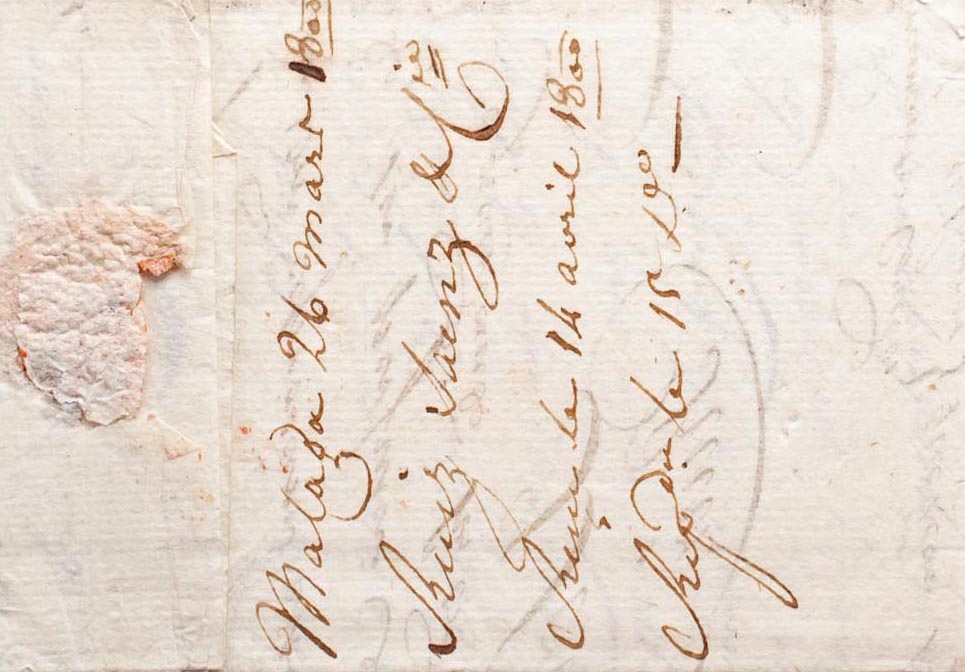 Malaga 26 Mars 1800
Ruiz Saenz & Cie
Reçu le 14 avril 1800
Rép. du le 15 do